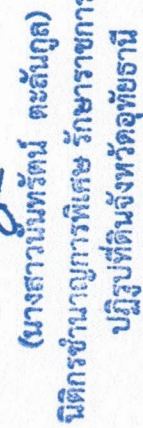 (นางสาวนนทรัตน์ ตะสันกูล)
นิติกรชำนาญการพิเศษ รักษาราชการ
ปฏิรูปที่ดินจังหวัดอุทัยธานี